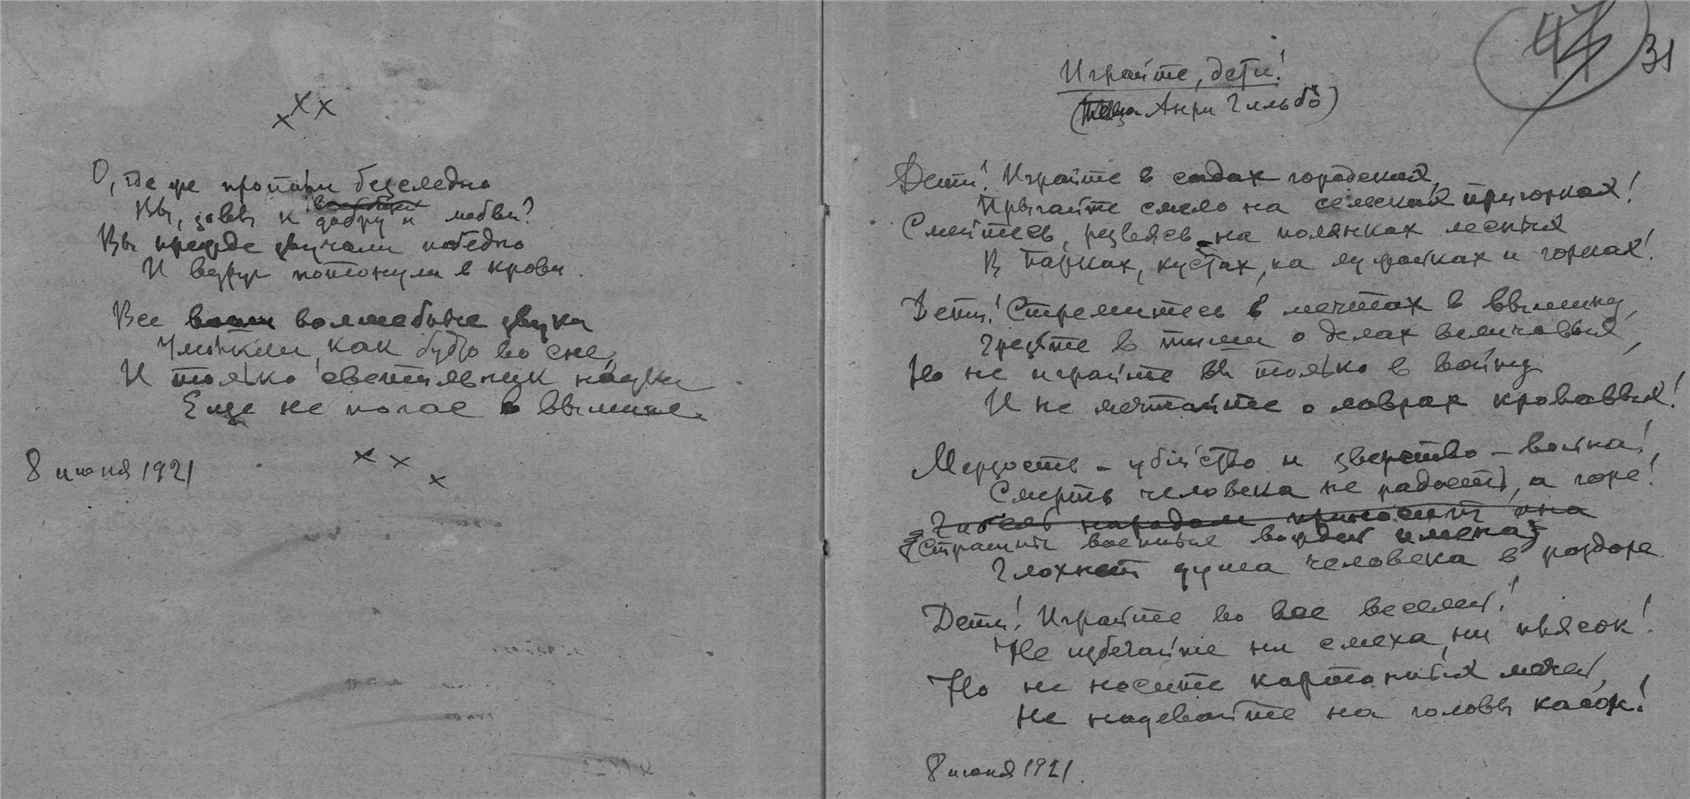 × × ×
О, где же пропали бесследно
Вы, зовы к добру и любви?
Вы прежде звучали победно
И вдруг потонули в крови.
Все волшебные звуки
Умолкли, как будто во сне,
И только светильник науки
Еще не погас в вышине.
× × ×
8 июня 1921
44 31
Играйте, дети!
(Анри Гильбо)
Дети! Играйте в садах городских,
Прыгайте смело на сельских пригорках!
Смейтесь, резвясь на полянках лесных
В парках, кустах, на лужайках и горках!
Дети! Стремитесь в мечтах в вышину,
Грезьте в тиши о делах величавых,
Но не играйте вы только в войну
И не мечтайте о лаврах кровавых!
Мерзость – убийство и зверство – война!
Смерть человека не радость, а горе!
Гибель народам приносит она
Страшны военных вождей имена,
Глохнет душа человека в раздоре.
Дети! Играйте во все веселей!
Не избегайте ни смеха, ни плясок!
Но не носите картонных мечей,
Не надевайте на головы касок!
8 июня 1921.